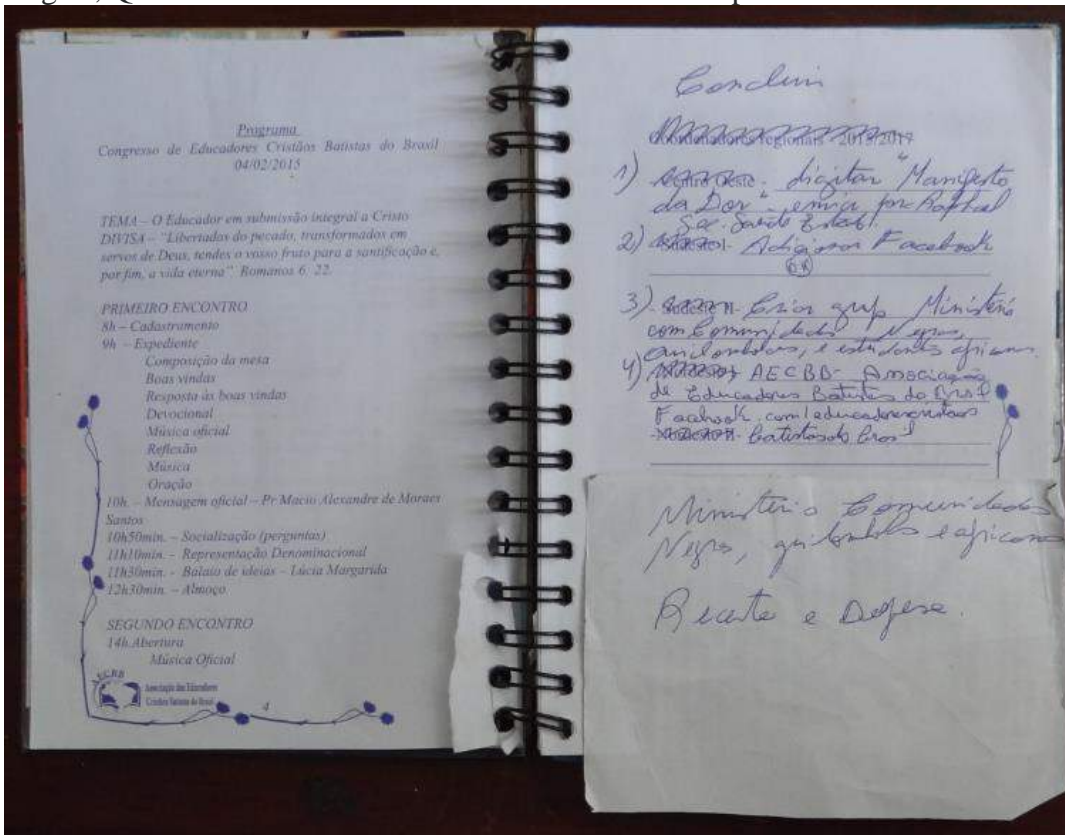 Programa
Congresso de Educadores Cristãos Batistas do Brasil
04/02/2015
TEMA – O Educador em submissão integral a Cristo
DIVISA – "Libertados do pecado, transformados em
servos de Deus, tendes o vosso fruto para a santificação e,
por fim, a vida eterna" Romanos 6. 22.
PRIMEIRO ENCONTRO
8h – Cadastramento
9h – Expediente
Composição da mesa
Boas vindas
Resposta às boas vindas
Devocional
Música oficial
Reflexão
Música
Oração
10h. – Mensagem oficial – Pr Macio Alexandre de Moraes
Santos
10h50min. – Socialização (perguntas)
11h10min. - Representação Denominacional
11h30min. - Balaio de ideias – Lúcia Margarida
12h30min. – Almoço
SEGUNDO ENCONTRO
14h.Abertura
Música Oficial
AECBB
Associação dos Educadores
Cristãos Batistas do Brasil
4
Coordenadores regionais 2015/2017
1) Centro Oeste - digitar "Manifesto
da Dor" - enviar por Raphael
Sec. Saúde Estal.
2) Adicionar Facebook
OK
3) Sudeste II- Criar grup Ministério
com Comunidades Negras,
quilombolas, e estudantes african
4) AECBB- Associação
de Educadores Batistas do Bras
Facebook.com/educadorescristaos
batistasdo bras
Ministério Comunidades
Negras, quilombolas e africanos
Receita e Defesa.